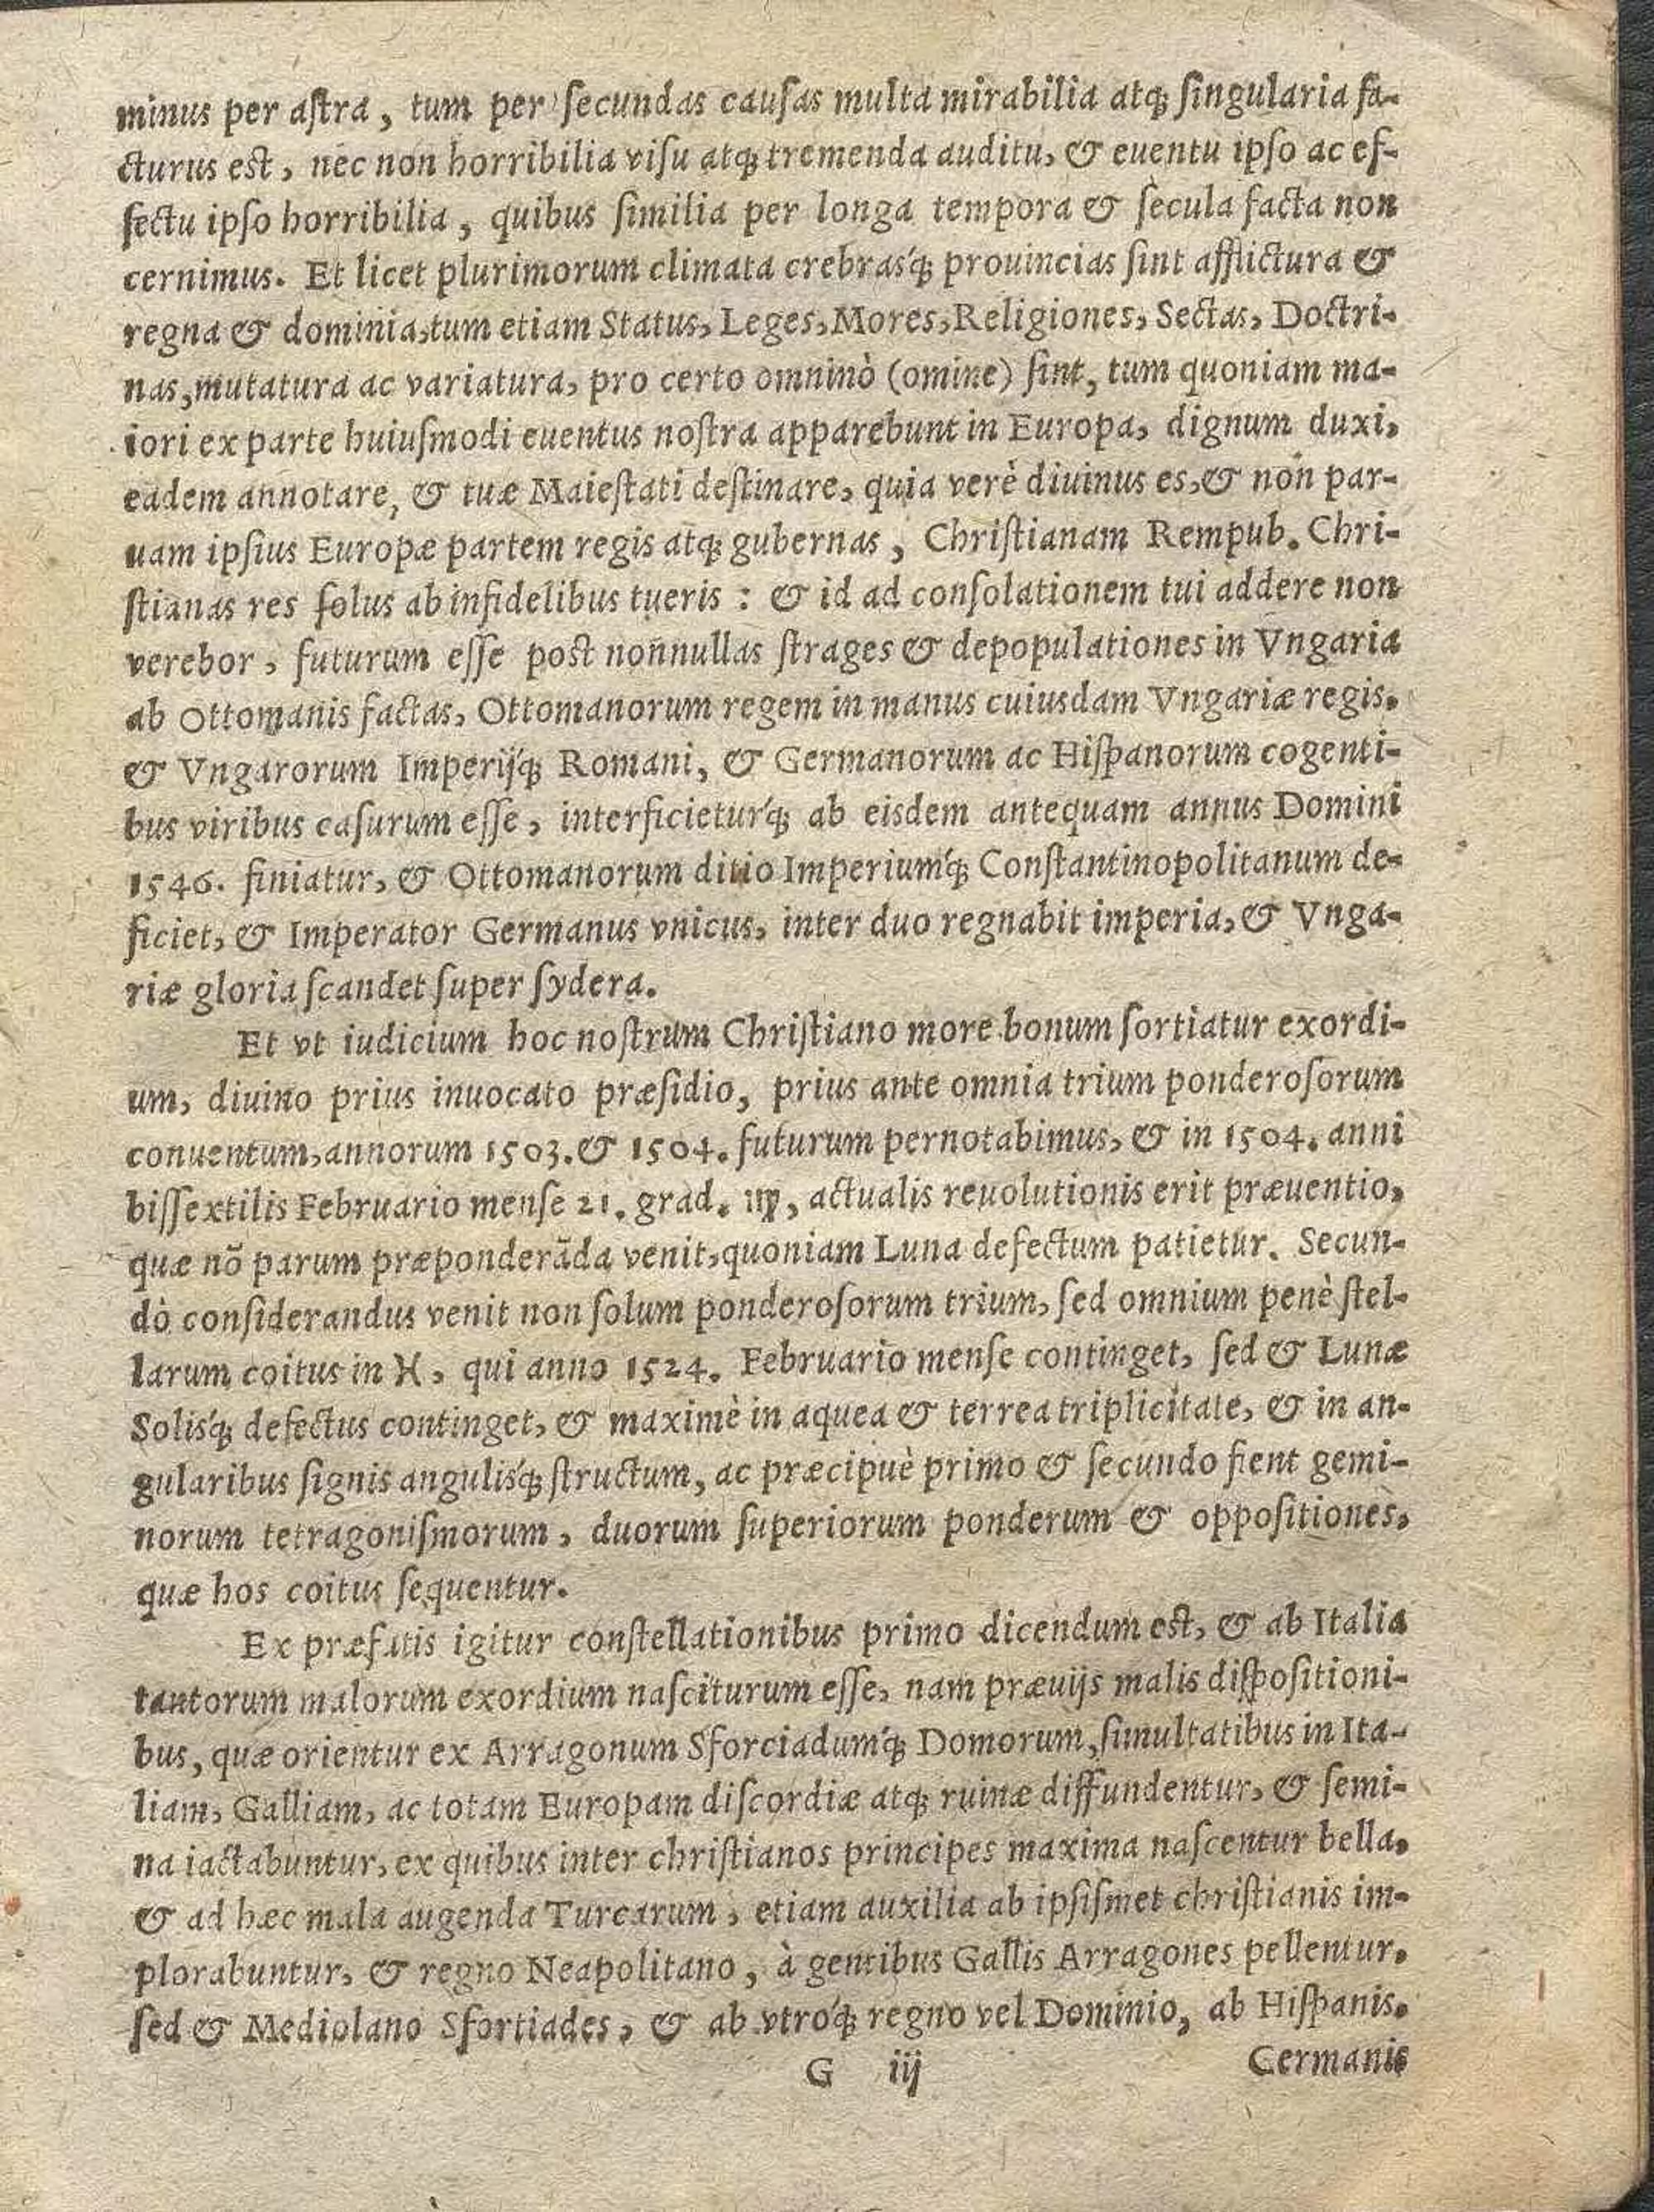 minus per aſtra, tum per ſecundas cauſas multa mirabilia atq́; ſingularia fa-
cturus est, nec non horribilia viſu atq́; tremenda auditu, & euentu ipſo ac ef-
fectu ipſo horribilia, quibus ſimilia per longa tempora & ſecula facta non
cernimus. Et licet plurimorum climata crebrasq́; prouincias ſint afflictura &
regna & dominia, tum etiam Status, Leges, Mores, Religiones, Sectas, Doctri-
nas, mutatura ac variatura, pro certo omninò (omine) ſint, tum quoniam ma-
iori ex parte huiuſmodi euentus noſtra apparebunt in Europa, dignum duxi,
eadem annotare, & tuæ Maieſtati deſtinare, quia verè diuinus es, & non par-
uam ipſius Europæ partem regis atq́; gubernas, Chriſtianam Rempub. Chri-
ſtianas res ſolus ab infidelibus tueris: & id ad conſolationem tui addere non
verebor, futurum eſſe post nonnullas ſtrages & depopulationes in Vngaria
ab Ottomanis factas, Ottomanorum regem in manus cuiusdam Vngariæ regis,
& Vngarorum Imperijq́; Romani, & Germanorum ac Hiſpanorum cogenti-
bus viribus caſurum eſſe, interficieturq́; ab eisdem antequam annus Domini
1546. finiatur, & Ottomanorum ditio Imperiumq́; Conſtantinopolitanum de-
ficiet, & Imperator Germanus vnicus, inter duo regnabit imperia, & Vnga-
riæ gloria ſcandet ſuper ſydera.
Et vt iudicium hoc noſtrum Chriſtiano more bonum ſortiatur exordi-
um, diuino prius inuocato præſidio, prius ante omnia trium ponderoſorum
conuentum, annorum 1503. & 1504. futurum pernotabimus, & in 1504. anni
biſſextilis Februario menſe 21. grad. ♍, actualis reuolutionis erit præuentio,
quæ nõ parum præponderãda venit, quoniam Luna defectum patietur. Secun-
dò conſiderandus venit non ſolum ponderoſorum trium, ſed omnium penè ſtel-
larum coitus in ♓, qui anno 1524. Februario menſe continget, ſed & Lunæ
Solisq́; defectus continget, & maximè in aquea & terrea triplicitate, & in an-
gularibus ſignis angulisq́; ſtructum, ac præcipuè primo & ſecundo fient gemi-
norum tetragoniſmorum, duorum ſuperiorum ponderum & oppoſitiones,
quæ hos coitus ſequentur.
Ex præfatis igitur conſtellationibus primo dicendum est, & ab Italia
tantorum malorum exordium naſciturum eſſe, nam præuijs malis diſpoſitioni-
bus, quæ orientur ex Arragonum Sforciadumq́; Domorum, ſimultatibus in Ita-
liam, Galliam, ac totam Europam diſcordiæ atq́; ruinæ diffundentur, & ſemi-
na iactabuntur, ex quibus inter chriſtianos principes maxima naſcentur bella,
& ad hæc mala augenda Turcarum, etiam auxilia ab ipſiſmet chriſtianis im-
plorabuntur, & regno Neapolitano, à gentibus Gallis Arragones pellentur,
ſed & Mediolano Sfortiades, & ab vtroq́; regno vel Dominio, ab Hiſpanis,
G iij Germanis